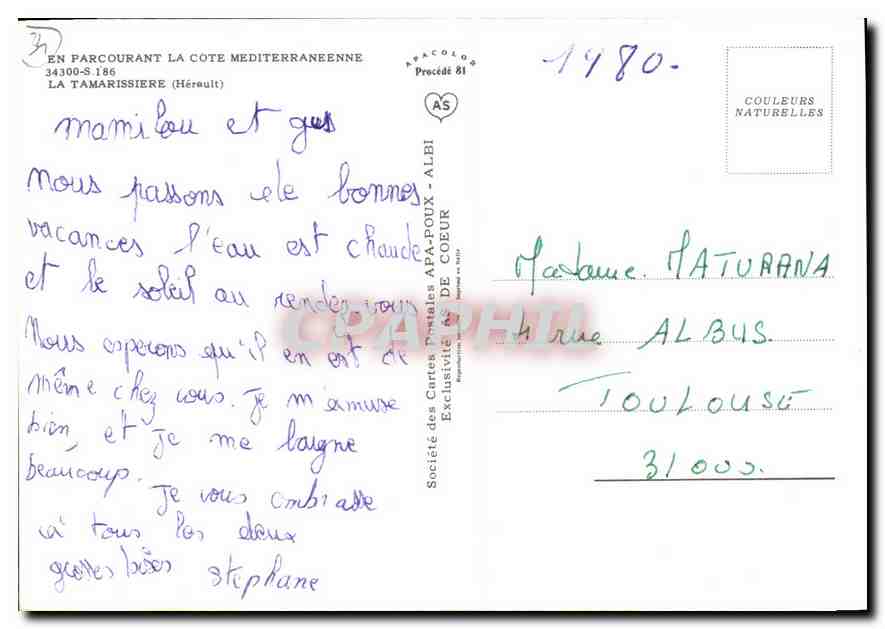 34
EN PARCOURANT LA COTE MEDITERRANEENNE
34300-S.186
LA TAMARISSIERE (Hérault)
mamilou et gus
Nous passons de bonnes
vacances l'eau est chaude
et le soleil au rendez-vous
Nous esperons qu'il en est de
même chez vous. Je m'amuse
bien, et Je me baigne
beaucoup.
Je vous embrasse
à tous les deux
grosses bises stephane
APACOLOR
Procédé 81
AS
Société des Cartes Postales APA-POUX - ALBI
Exclusivité AS DE COEUR
1980.
COULEURS
NATURELLES
Madame MATURANA
4 rue ALBUS.
TOULOUSE
31000.
CPAPHIL